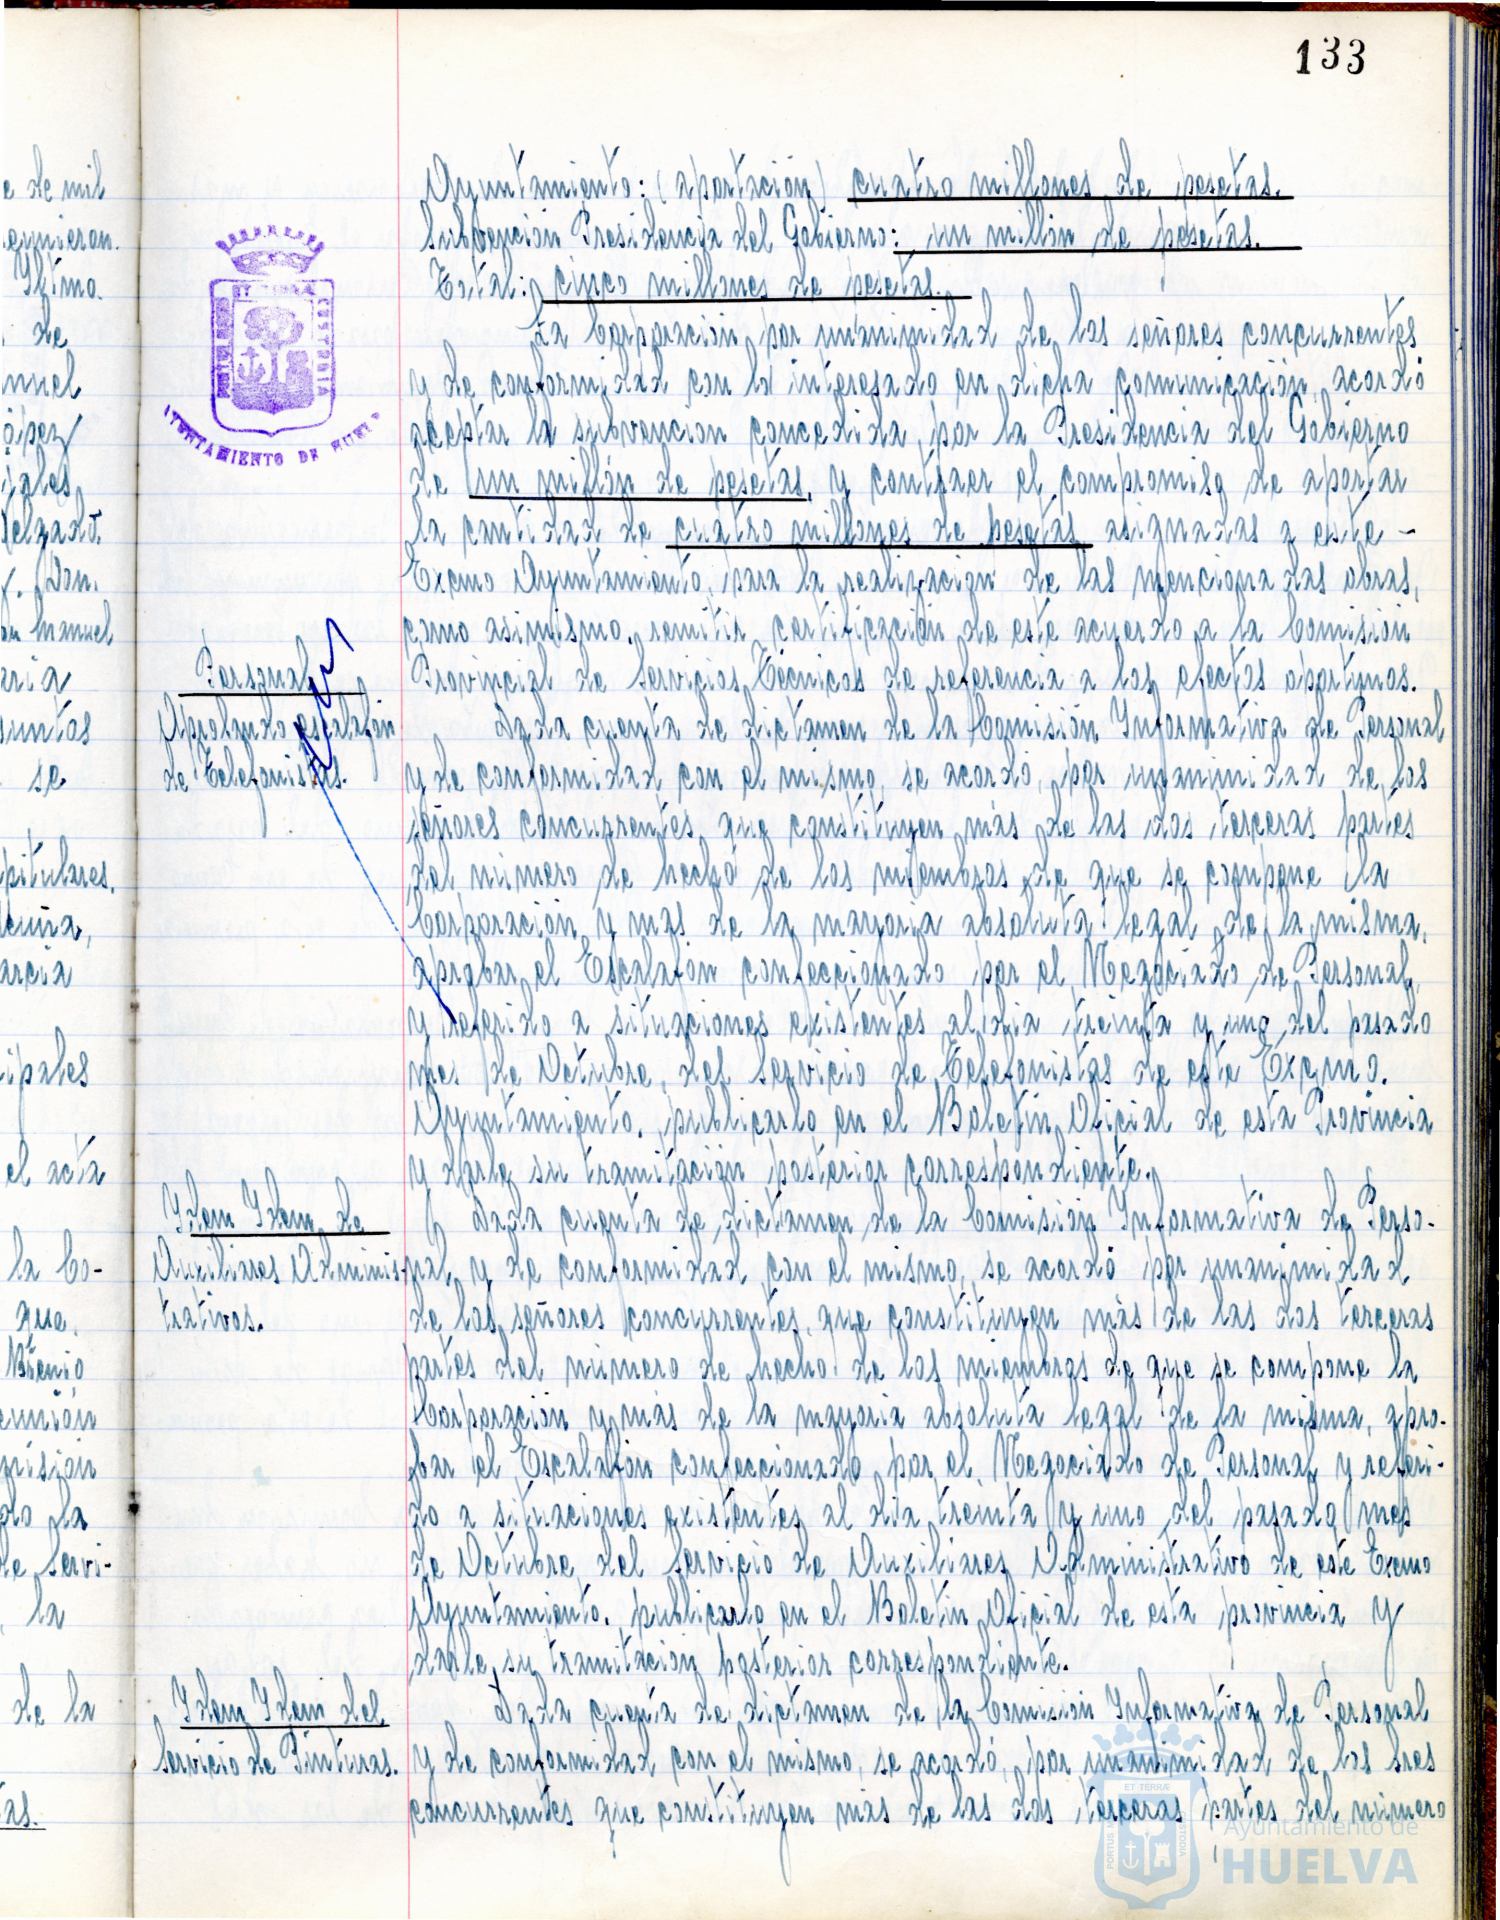 133
Ayuntamiento: (aportación) cuatro millones de pesetas.
Subvención Presidencia del Gobierno: un millón de pesetas.
Total: cinco millones de pesetas.
La Corporación por unanimidad de los señores concurrentes
y de conformidad con lo interesado en dicha comunicación, acordó
aceptar la subvención concedida, por la Presidencia del Gobierno
de un millón de pesetas, y contraer el compromiso de aportar
la cantidad de cuatro millones de pesetas asignadas a este -
Excmo Ayuntamiento, para la realización de las mencionadas obras,
como asimismo, remitir certificación de este acuerdo a la Comisión
Provincial de Servicios Técnicos de referencia a los efectos oportunos.
Personal
Aprobando escalafón
de Telefonistas.
Dada cuenta de dictamen de la Comisión Informativa de Personal
y de conformidad con el mismo, se acordó, por unanimidad de los
señores concurrentes, que constituyen más de las dos terceras partes
del número de hecho de los miembros de que se compone la
Corporación y más de la mayoria absoluta legal de la misma,
aprobar el Escalafón confeccionado por el Negociado de Personal,
y referido a situaciones existentes al dia treinta y uno del pasado
mes de Octubre, del Servicio de Telefonistas de este Excmo.
Ayuntamiento, publicarlo en el Boletín Oficial de esta Provincia
y darle su tramitación posterior correspondiente.
Idem Idem de
Auxiliares Adminis-
trativos.
Dada cuenta de dictamen de la Comisión Informativa de Perso-
nal, y de conformidad con el mismo, se acordó por unanimidad
de los señores concurrentes, que constituyen más de las dos terceras
partes del número de hecho de los miembros de que se compone la
Corporación y más de la mayoria absoluta legal de la misma, apro-
bar el Escalafón confeccionado por el Negociado de Personal y referi-
do a situaciones existentes al dia treinta y uno del pasado mes
de Octubre, del Servicio de Auxiliares Administrativo de este Excmo
Ayuntamiento, publicarlo en el Boletín Oficial de esta provincia y
darle su tramitación posterior correspondiente.
Idem Idem del
Servicio de Pinturas.
Dada cuenta de dictamen de la Comisión Informativa de Personal
y de conformidad con el mismo, se acordó, por unanimidad de los Sres
concurrentes que constituyen más de las dos terceras partes del número
AYUNTAMIENTO DE HUELVA
e de mil
Iltmo.
de
nuel
ópez
iales
elgado.
. Don.
on Manuel
aria
untas
se
pitulares.
arcia
ipales
el acta
la Co-
que,
eunión
misión
do la
de Servi-
, la
de la
as.
Ayuntamiento de
HUELVA